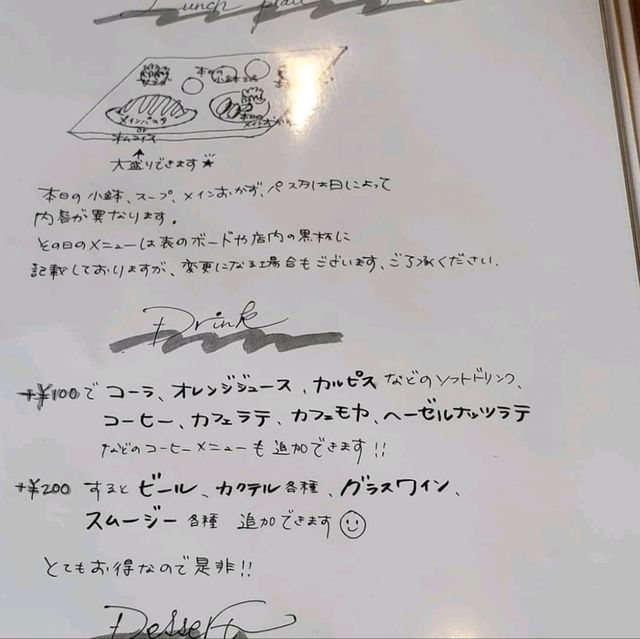 Lunch plate
本日の小鉢
メインパスタ
or
オムライス
本日の
メインおかず
大盛りできます★
本日の小鉢、スープ、メインおかず、パスタは日によって
内容が異なります。
その日のメニューは表のボードや店内の黒板に
記載しておりますが、変更になる場合もございます、ご了承ください。
Drink
+¥100で コーラ、オレンジジュース、カルピスなどのソフトドリンク、
コーヒー、カフェラテ、カフェモカ、ヘーゼルナッツラテ
などのコーヒーメニューも追加できます!!
+¥200 すると ビール、カクテル各種、グラスワイン、
スムージー各種 追加できます
とてもお得なので是非!!
Dessert